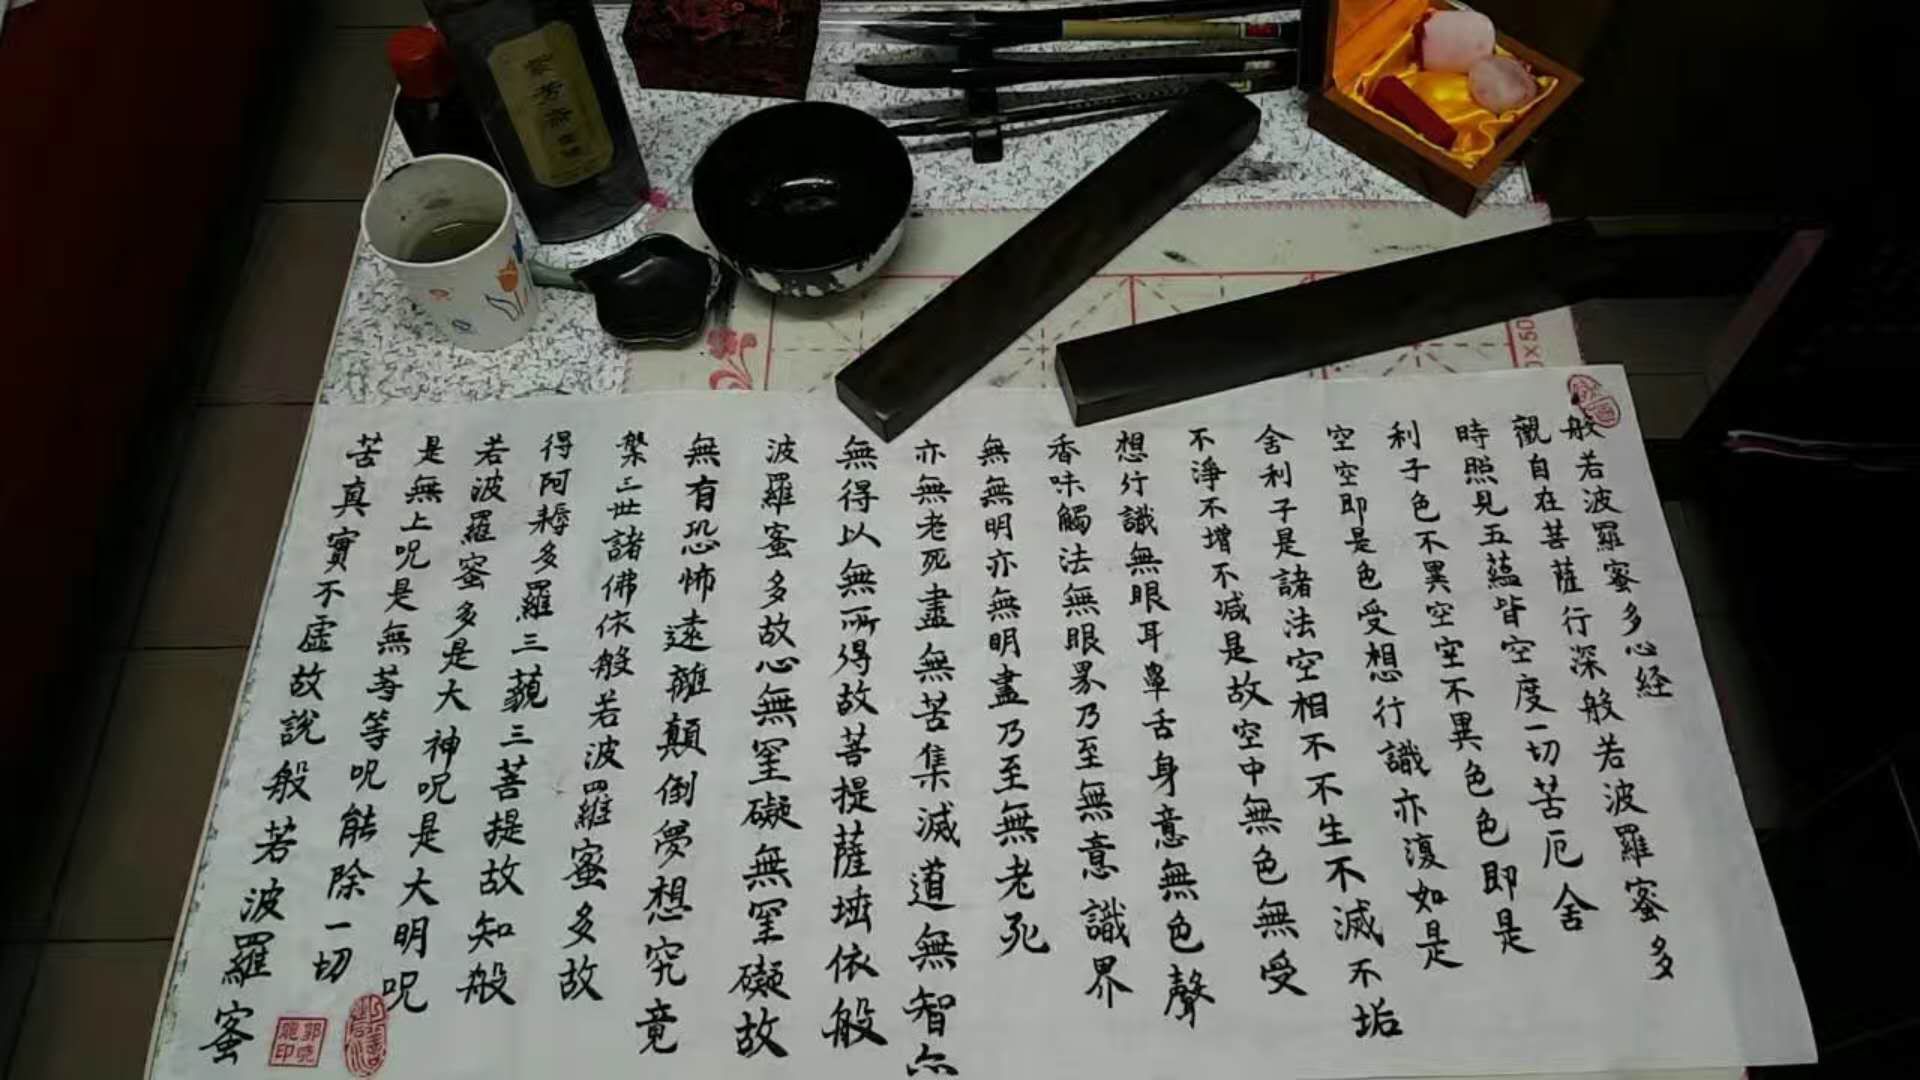 般若波羅蜜多心経
觀自在菩薩行深般若波羅蜜多
時照見五蘊皆空度一切苦厄舍
利子色不異空空不異色色即是
空空即是色受想行識亦復如是
舍利子是諸法空相不不生不滅不垢
不淨不增不減是故空中無色無受
想行識無眼耳鼻舌身意無色聲
香味觸法無眼界乃至無意識界
無無明亦無明盡乃至無老死
亦無老死盡無苦集滅道無智亦
無得以無所得故菩提薩埵依般
波羅蜜多故心無罣礙無罣礙故
無有恐怖遠離顛倒夢想究竟
槃三世諸佛依般若波羅蜜多故
得阿耨多羅三藐三菩提故知般
若波羅蜜多是大神呪是大明呪
是無上呪是無等等呪能除一切
苦真實不虛故說般若波羅蜜